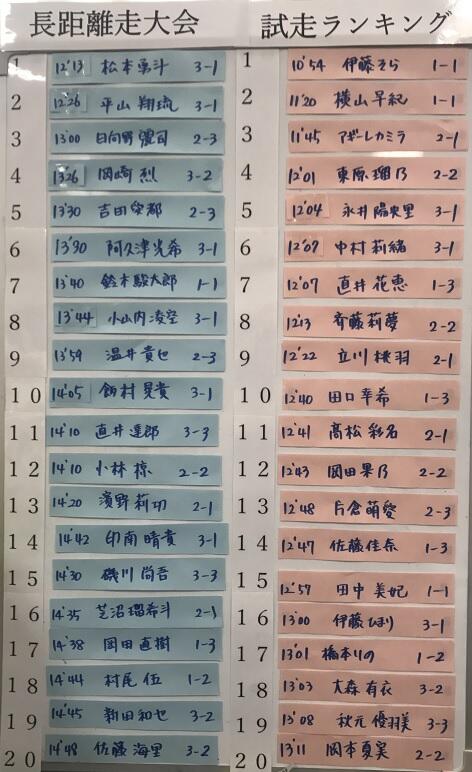 長距離走大会 試走ランキング
1 12'13 松本勇斗 3-1
2 12'26 平山翔琉 3-1
3 13'00 日向野 司 2-3
4 13'26 岡崎烈 3-2
5 13'30 吉田 都 2-3
6 13'30 阿久津光希 3-1
7 13'40 鈴木駿太郎 1-1
8 13'44 小山内凌空 3-1
9 13'59 温井貴也 2-3
10 14'05 飯村晃貴 3-1
11 14'10 直井達郎 3-3
12 14'10 小林椋 2-2
13 14'20 濱野莉功 2-1
14 14'42 印南晴貴 3-1
15 14'30 磯川尚吾 3-3
16 14'35 芝沼瑠希斗 2-1
17 14'38 岡田直樹 1-3
18 14'44 村尾伍 1-2
19 14'45 新田和也 3-2
20 14'48 佐藤海里 3-2
1 10'54 伊藤そら 1-1
2 11'20 横山早紀 1-1
3 11'45 アギーレカミラ 2-1
4 12'01 東原瑠乃 2-2
5 12'04 永井陽央里 3-1
6 12'07 中村莉緒 3-1
7 12'07 直井花恵 1-3
8 12'13 斉藤莉夢 2-2
9 12'22 立川桃羽 2-1
10 12'40 田口幸希 1-3
11 12'41 髙松彩名 2-1
12 12'43 岡田果乃 2-2
13 12'48 片倉萌愛 2-3
14 12'47 佐藤佳奈 1-3
15 12'57 田中美妃 1-1
16 13'00 伊藤ひまり 3-1
17 13'01 橋本りの 1-2
18 13'03 大森有衣 3-2
19 13'08 秋元優羽美 3-3
20 13'11 岡本夏実 2-2